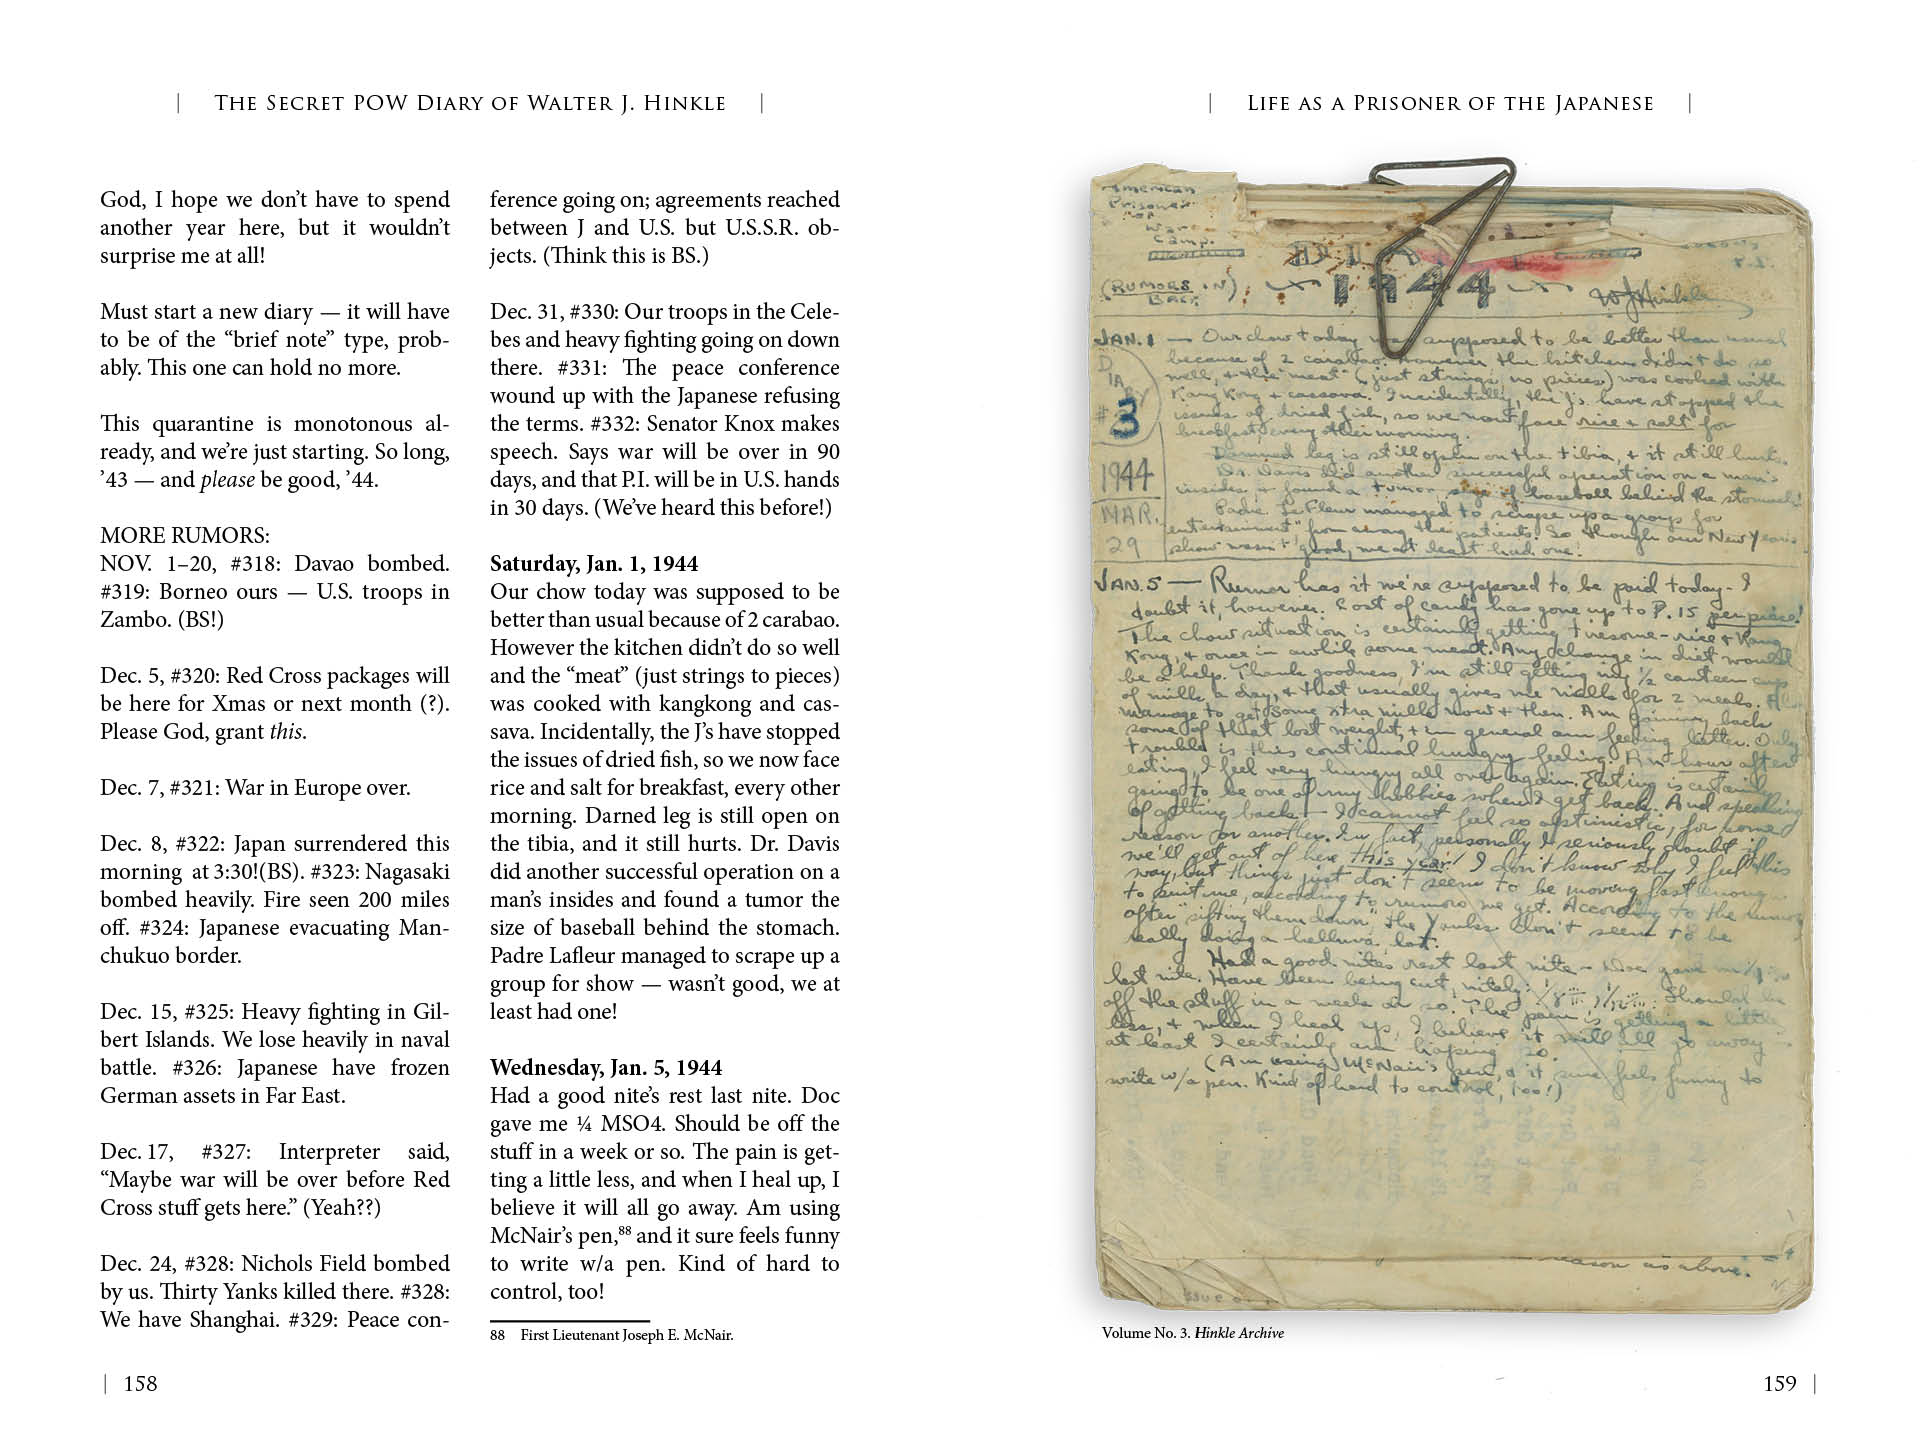 THE SECRET POW DIARY OF WALTER J. HINKLE
God, I hope we don’t have to spend
another year here, but it wouldn’t
surprise me at all!
Must start a new diary — it will have
to be of the “brief note” type, prob-
ably. This one can hold no more.
This quarantine is monotonous al-
ready, and we’re just starting. So long,
’43 — and please be good, ’44.
MORE RUMORS:
NOV. 1–20, #318: Davao bombed.
#319: Borneo ours — U.S. troops in
Zambo. (BS!)
Dec. 5, #320: Red Cross packages will
be here for Xmas or next month (?).
Please God, grant this.
Dec. 7, #321: War in Europe over.
Dec. 8, #322: Japan surrendered this
morning at 3:30!(BS). #323: Nagasaki
bombed heavily. Fire seen 200 miles
off. #324: Japanese evacuating Man-
chukuo border.
Dec. 15, #325: Heavy fighting in Gil-
bert Islands. We lose heavily in naval
battle. #326: Japanese have frozen
German assets in Far East.
Dec. 17, #327: Interpreter said,
“Maybe war will be over before Red
Cross stuff gets here.” (Yeah??)
Dec. 24, #328: Nichols Field bombed
by us. Thirty Yanks killed there. #328:
We have Shanghai. #329: Peace con-
ference going on; agreements reached
between J and U.S. but U.S.S.R. ob-
jects. (Think this is BS.)
Dec. 31, #330: Our troops in the Cele-
bes and heavy fighting going on down
there. #331: The peace conference
wound up with the Japanese refusing
the terms. #332: Senator Knox makes
speech. Says war will be over in 90
days, and that P.I. will be in U.S. hands
in 30 days. (We’ve heard this before!)
Saturday, Jan. 1, 1944
Our chow today was supposed to be
better than usual because of 2 carabao.
However the kitchen didn’t do so well
and the “meat” (just strings to pieces)
was cooked with kangkong and cas-
sava. Incidentally, the J’s have stopped
the issues of dried fish, so we now face
rice and salt for breakfast, every other
morning. Darned leg is still open on
the tibia, and it still hurts. Dr. Davis
did another successful operation on a
man’s insides and found a tumor the
size of baseball behind the stomach.
Padre Lafleur managed to scrape up a
group for show — wasn’t good, we at
least had one!
Wednesday, Jan. 5, 1944
Had a good nite’s rest last nite. Doc
gave me ¼ MSO4. Should be off the
stuff in a week or so. The pain is get-
ting a little less, and when I heal up, I
believe it will all go away. Am using
McNair’s pen,88 and it sure feels funny
to write w/a pen. Kind of hard to
control, too!
88 First Lieutenant Joseph E. McNair.
158
LIFE AS A PRISONER OF THE JAPANESE
American
Prisoner
War
Camp.
(RUMORS IN
BACK)
1944
WJHinkle
JAN. 1 — Our chow today was supposed to be better than usual
because of 2 carabao. However the kitchen didn't do so
well, & the "meat" (just strings, no pieces) was cooked with
Kang Kong & cassava. Incidentally, the J's have stopped the
issues of dried fish, so we now face rice & salt for
breakfast, every other morning.
Damned leg is still open on the tibia, & it still hurts.
Dr. Davis did another successful operation on a man's
insides, & found a tumor size of baseball behind the stomach!
Padre LeFleur managed to scrape up a group for
"entertainment," from among the patients. So though our New Years
show wasn't good, we at least had one!
DIARY
#3
1944
MAR.
29
JAN. 5 — Rumor has it we're supposed to be paid today - I
doubt it, however. Cost of candy has gone up to P.15 per piece!
The chow situation is certainly getting tiresome - rice & Kang
Kong, & once in awhile some meat. Any change in diet would
be a help. Thank goodness, I'm still getting my ½ canteen cup
of milk a day, & that usually gives me milk for 2 meals.
manage to get some xtra milk now & then. Am gaining back
some of that lost weight, & in general am feeling better. Only
trouble is this continual hungry feeling. An hour after
eating, I feel very hungry all over again. Eating is certainly
going to be one of my hobbies when I get back. And speaking
of getting back - I cannot feel so optimistic, for some
reason or another. In fact, personally I seriously doubt if
we'll get out of here this year! I don't know why I feel this
way, but things just don't seem to be moving fast enough
to suit me, according to rumors we get. According to the rumors
after "sifting them down," the Yanks don't seem to be
really doing a helluva lot.
Had a good nite's rest last nite - Doc gave
last nite. Have been being cut, nitely: Should be
off the stuff in a week or so. The pain is getting a little
less, & when I heal up, I believe it will all go away -
at least I certainly am hoping so.
(Am using McNair's pen, & it sure feels funny to
write w/a pen. Kind of hard to control, too!)
reason as above.
Volume No. 3. Hinkle Archive
159